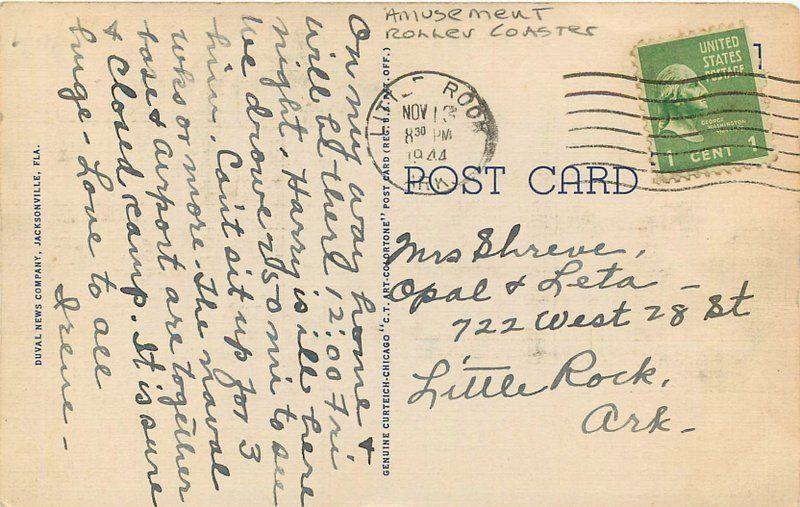 AMUSEMENT
ROLLER COASTER
UNITED
STATES
POSTAGE
GEORGE
WASHINGTON
1 CENT 1
LITTLE ROCK
NOV 13
8 30 PM
1944
ARK.
POST CARD
Mrs Shreve,
Opal & Leta -
722 West 28 St
Little Rock,
Ark -
On my way home &
will be there 12:00 Fri
night. Harry is ill here
we drove 750 mi to see
him. Can't sit up for 3
wks or more. The naval
base & airport are together
& closed camp. It is sure
huge - Love to all
Irene -
DUVAL NEWS COMPANY, JACKSONVILLE, FLA.
GENUINE CURTEICH-CHICAGO "C.T. ART-COLORTONE" POST CARD (REG. U.S. PAT. OFF.)